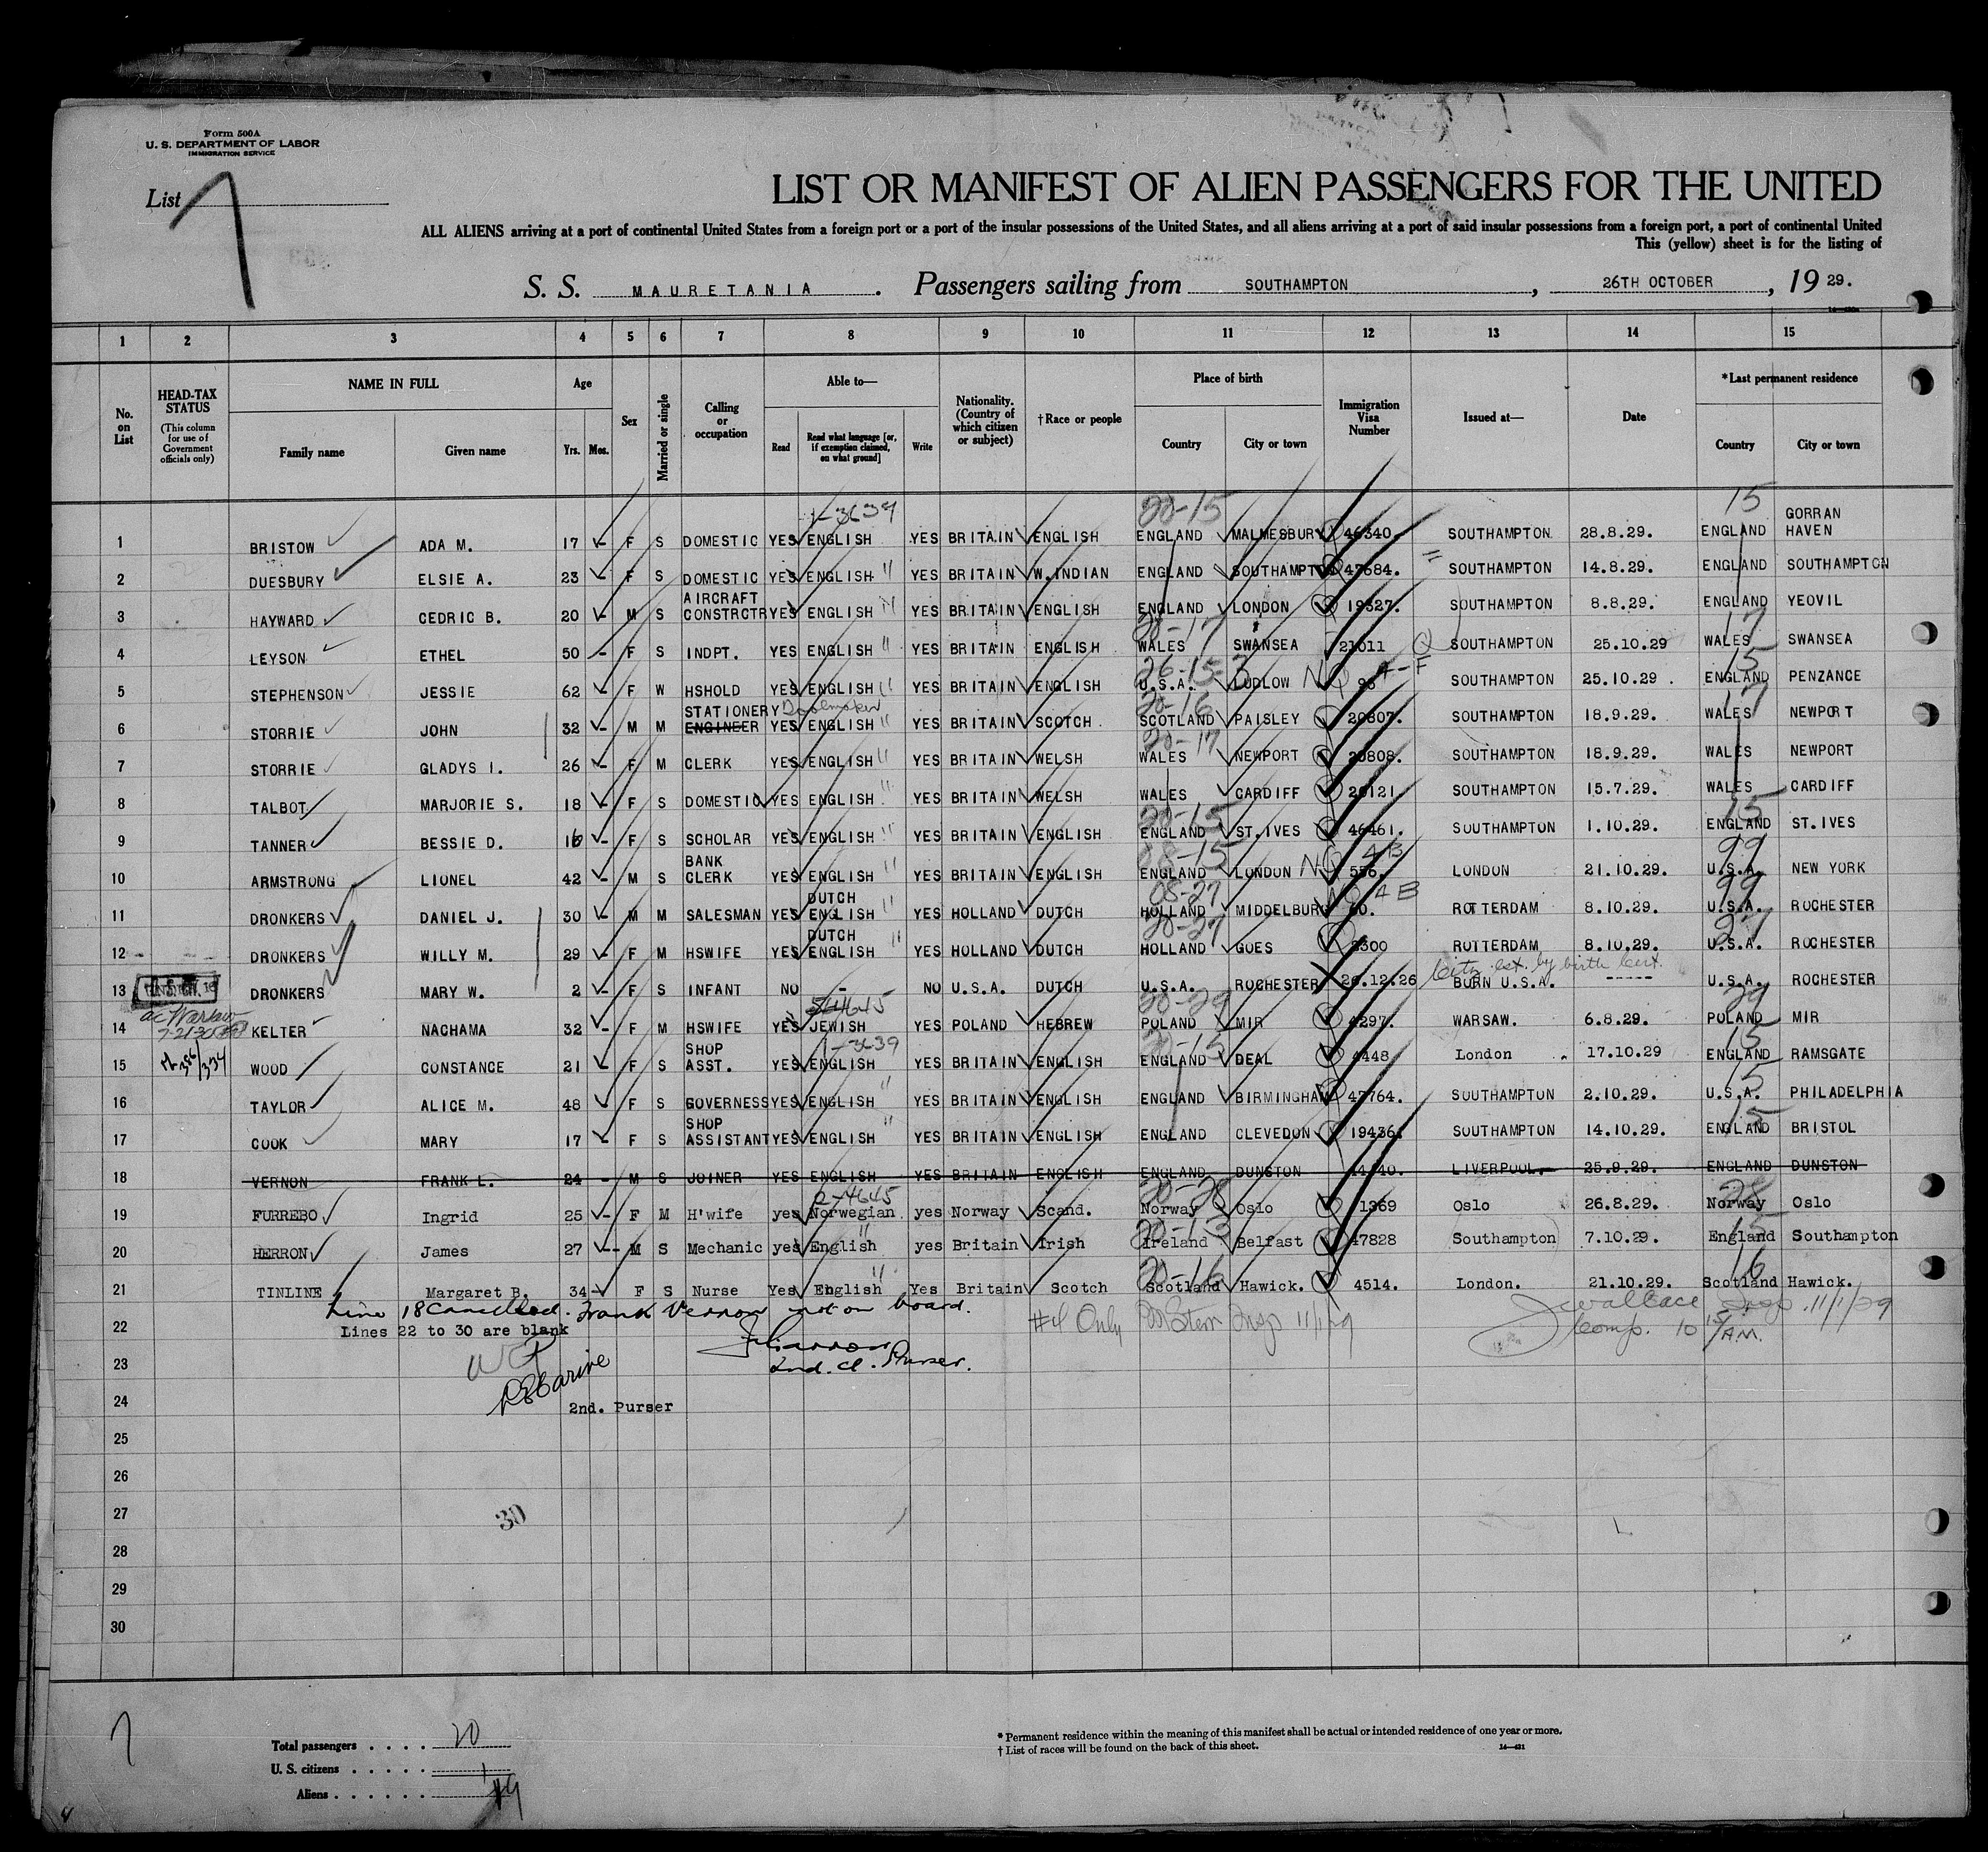 Form 500A
U. S. DEPARTMENT OF LABOR
IMMIGRATION SERVICE
List 7
LIST OR MANIFEST OF ALIEN PASSENGERS FOR THE UNITED
ALL ALIENS arriving at a port of continental United States from a foreign port or a port of the insular possessions of the United States, and all aliens arriving at a port of said insular possessions from a foreign port, a port of continental United
This (yellow) sheet is for the listing of
S. S. MAURETANIA . Passengers sailing from SOUTHAMPTON , 26TH OCTOBER , 19 29.
1 2 3 4 5 6 7 8 9 10 11 12 13 14 15
No. on List
HEAD-TAX STATUS (This column for use of Government officials only)
NAME IN FULL Family name Given name
Age Yrs. Mos.
Sex
Married or single
Calling or occupation
Able to— Read Read what language [or, if exemption claimed, on what ground] Write
Nationality. (Country of which citizen or subject)
†Race or people
Place of birth Country City or town
Immigration Visa Number
Issued at—
Date
*Last permanent residence Country City or town
1-3639 20-15 15
1 BRISTOW ADA M. 17 - F S DOMESTIC YES ENGLISH YES BRITAIN ENGLISH ENGLAND MALMESBURY 46340. SOUTHAMPTON 28.8.29. ENGLAND GORRAN HAVEN
2 DUESBURY ELSIE A. 23 - F S DOMESTIC YES ENGLISH " YES BRITAIN W.INDIAN ENGLAND SOUTHAMPTON 47684. SOUTHAMPTON 14.8.29. ENGLAND SOUTHAMPTON
3 HAYWARD CEDRIC B. 20 - M S AIRCRAFT CONSTRCTR YES ENGLISH " YES BRITAIN ENGLISH ENGLAND LONDON 19327. SOUTHAMPTON 8.8.29. ENGLAND YEOVIL
20-17 17
4 LEYSON ETHEL 50 - F S INDPT. YES ENGLISH " YES BRITAIN ENGLISH WALES SWANSEA 21011 SOUTHAMPTON 25.10.29 WALES SWANSEA
26-15-3 4-F 15
5 STEPHENSON JESSIE 62 - F W HSHOLD YES ENGLISH " YES BRITAIN ENGLISH U.S.A. LUDLOW NQ 96 SOUTHAMPTON 25.10.29 . ENGLAND PENZANCE
20-16 17
6 STORRIE JOHN 32 - M M STATIONERY ENGINEER Toolmaker YES ENGLISH " YES BRITAIN SCOTCH. SCOTLAND PAISLEY 20807. SOUTHAMPTON 18.9.29. WALES NEWPORT
20-17
7 STORRIE GLADYS I. 26 - F M CLERK YES ENGLISH " YES BRITAIN WELSH WALES NEWPORT 20808. SOUTHAMPTON 18.9.29. WALES NEWPORT
8 TALBOT MARJORIE S. 18 - F S DOMESTIC YES ENGLISH " YES BRITAIN WELSH WALES CARDIFF 20121. SOUTHAMPTON 15.7.29. WALES CARDIFF
20-15 15
9 TANNER BESSIE D. 16 - F S SCHOLAR YES ENGLISH " YES BRITAIN ENGLISH ENGLAND ST.IVES 46461. SOUTHAMPTON 1.10.29. ENGLAND ST.IVES
08-15 4B 99
10 ARMSTRONG LIONEL 42 - M S BANK CLERK YES ENGLISH " YES BRITAIN ENGLISH ENGLAND LONDON NQ 556. LONDON 21.10.29. U.S.A. NEW YORK
08-27 NQ 4B 99
11 DRONKERS DANIEL J. 30 - M M SALESMAN YES DUTCH ENGLISH " YES HOLLAND DUTCH HOLLAND MIDDELBURG 60. ROTTERDAM 8.10.29. U.S.A. ROCHESTER
20-27 27
12 DRONKERS WILLY M. 29 - F M HSWIFE YES DUTCH ENGLISH " YES HOLLAND DUTCH HOLLAND GOES 2300 ROTTERDAM 8.10.29. U.S.A. ROCHESTER
Citz. est. by birth Cert.
13 DRONKERS MARY W. 2 - F S INFANT NO - NO U.S.A. DUTCH U.S.A. ROCHESTER 20.12.26 BORN U.S.A. ----- U.S.A. ROCHESTER
20-29 29
14 KELTER NACHAMA 32 - F M HSWIFE YES JEWISH YES POLAND HEBREW POLAND MIR 4297. WARSAW. 6.8.29. POLAND MIR
1-3639 20-15 15
15 WOOD CONSTANCE 21 - F S SHOP ASST. YES ENGLISH YES BRITAIN ENGLISH ENGLAND DEAL 4448 London . 17.10.29 ENGLAND RAMSGATE
16 TAYLOR ALICE M. 48 - F S GOVERNESS YES ENGLISH " YES BRITAIN ENGLISH ENGLAND BIRMINGHAM 47764. SOUTHAMPTON 2.10.29. U.S.A. PHILADELPHIA
15
17 COOK MARY 17 - F S SHOP ASSISTANT YES ENGLISH " YES BRITAIN ENGLISH ENGLAND CLEVEDON 19436. SOUTHAMPTON 14.10.29. ENGLAND BRISTOL
18 VERNON FRANK L. 24 - M S JOINER YES ENGLISH YES BRITAIN ENGLISH ENGLAND DUNSTON LIVERPOOL. 25.9.29. ENGLAND DUNSTON
2-4645 20-28 28
19 FURREBO Ingrid 25 - F M H'wife yes Norwegian yes Norway Scand. Norway Oslo 1369 Oslo 26.8.29. Norway Oslo
20-13 15
20 HERRON James 27 -- M S Mechanic yes English " yes Britain Irish Ireland Belfast 47828 Southampton 7.10.29. England Southampton
20-16 16
21 TINLINE Margaret B. 34 F S Nurse Yes English " Yes Britain Scotch Scotland Hawick. 4514. London. 21.10.29. Scotland Hawick.
Line 18 Cancelled. Frank Vernon not on board.
22 Lines 22 to 30 are blank #4 Only Insp 11/1/29 J Wallace Insp. 11/1/29
Comp. 10 15 AM.
23 2nd. Cl. Purser.
24 2nd. Purser
25
26
27 30
28
29
30
7
Total passengers . . . . 20
U. S. citizens . . . . . 1
Aliens . . . . . . 19
* Permanent residence within the meaning of this manifest shall be actual or intended residence of one year or more.
† List of races will be found on the back of this sheet.
14—421